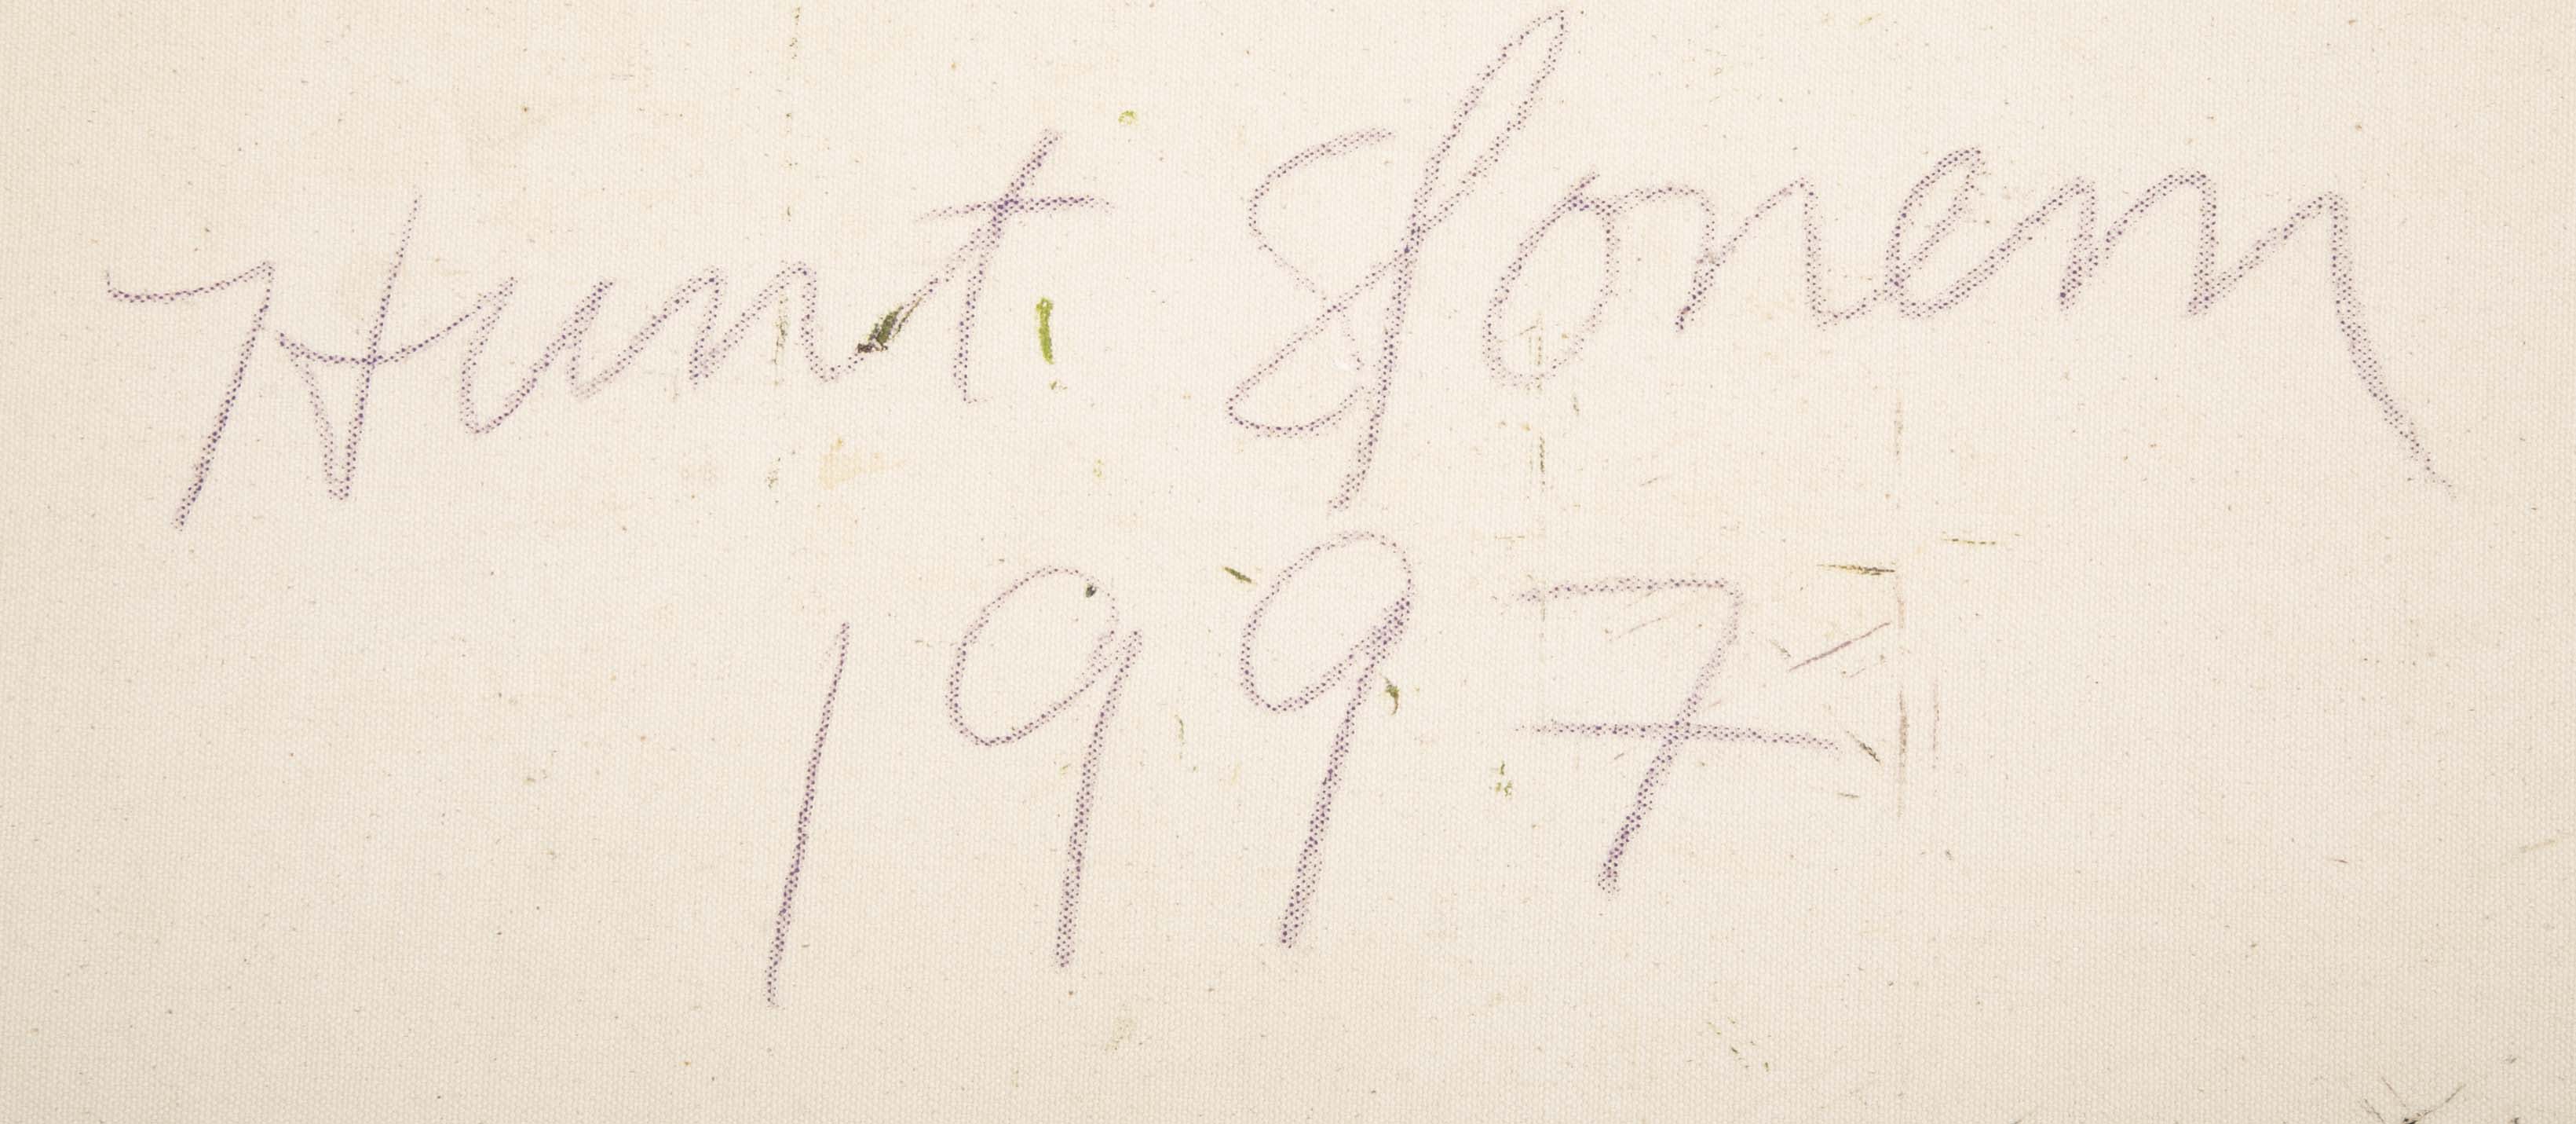 Hunt Slonem
1997